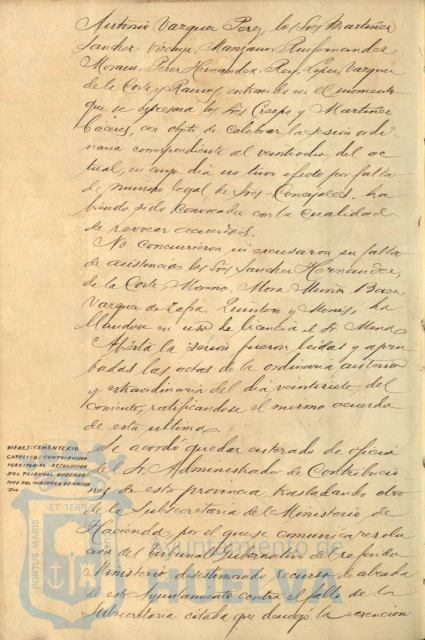 Antonio Vazquez Perez, los Sres Martinez
Sanchez, Vizcaya, Manzano, Ruifernandez,
Morano, Perez Hernandez, Rey, Lopez, Vazquez
de la Corte y Ramos, entrando en el momento
que se expresará los Sres Crespo y Martinez
Cáceres, con objeto de celebrar la sesión ordi-
naria correspondiente al veintiocho del ac-
tual, en cuyo dia no tuvo efecto por falta
de número legal de Sres Concejales, ha
biendo sido convocada con la cualidad
de revocar acuerdos.
No concurrieron ni excusaron su falta
de asistencia los Sres Sanchez Hernández,
de la Corte, Moreno, Mora, Muñoz, Baez,
Vazquez de Zafra, Quintero y Mones, ha
llandose en uso de licencia el Sr Mena
Abierta la sesion fueron leidas y apro
badas las actas de la ordinaria anterior
y extraordinaria del dia veintisiete del
corriente, ratificandose el mismo acuerdo
de esta ultima.
BIENES: CEMENTERIO
CATOLICO: CONTRIBUCION
TERRITORIAL
DEL TRIBUNAL GUBERNA
TIVO DEL MINISTERIO DE HACIEN
DA
Se acordó quedar enterado de oficio
de Sr. Administrador de Contribucio
nes de esta provincia, trasladando otro
de la Subsecretaria del Ministerio de
Hacienda, por el que se comunica resolu
ción del tribunal gubernativo del referido
Ministerio, desestimando recurso de alzada
de este Ayuntamiento contra el fallo de la
Subsecretaria citada que denegó la exencion
ET TERRAE
PORTUS MARIS
Ayuntamiento de
HUELVA